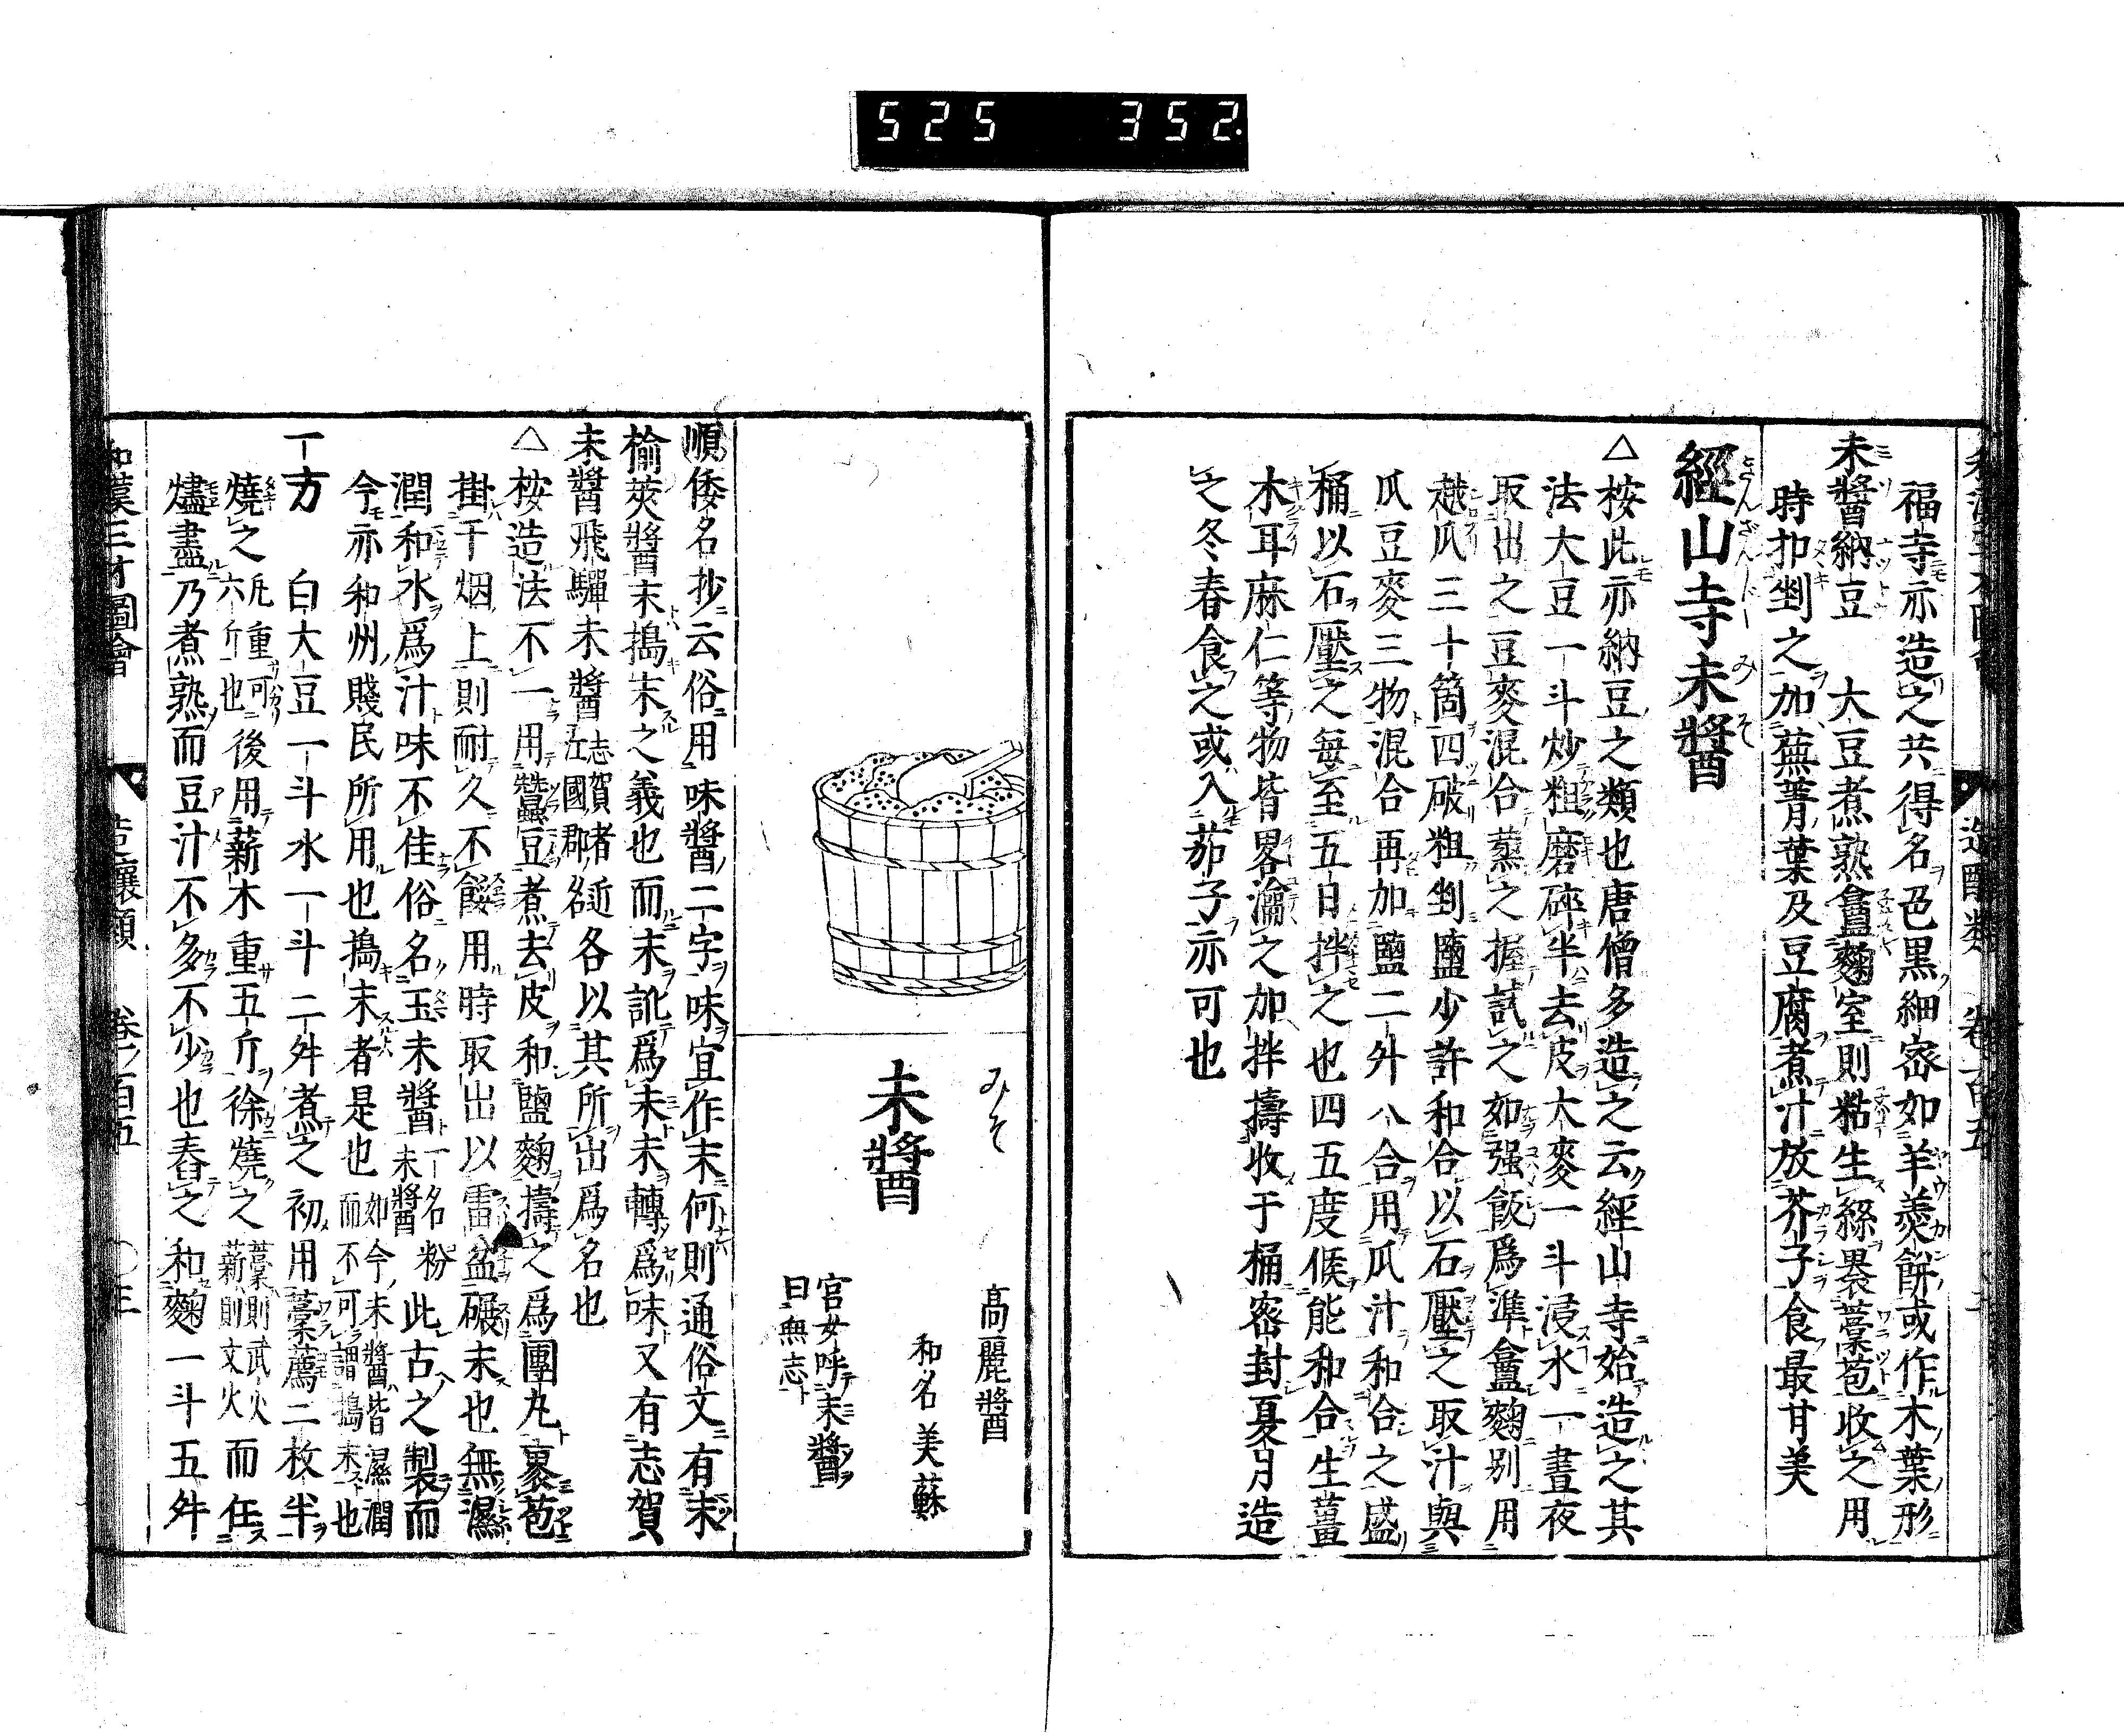 525 352.
福寺亦造之共得名色黒細宻如羊羮餅或作木葉形
未醬納豆 大豆煮熟盦麹室則粘生絲裹藁苞收之用
時扣剉之加蕪菁葉及豆腐煮汁放芥子食最甘美
經山寺未醬
きんざんじ みそ
△按此亦納豆之類也唐僧多造之云經山寺始造之其
法大豆一斗炒粗磨碎半去皮大麥一斗浸水一晝夜
取出之豆麥混合蒸之握試之如强飯爲準盦麹别用
越瓜三十箇四破粗剉鹽少許和合以石壓之取汁與
瓜豆麥三物混合再加鹽二升八合用瓜汁和合之盛
桶以石壓之毎至五日拌之也四五度候能和合生薑
木耳麻仁等物皆畧瀹之加拌擣收于桶宻封夏月造
之冬春食之或入茄子亦可也
みそ
未醬
高麗醬
和名美蘇
宮女呼末醬
曰無志
順倭名抄云俗用味醬二字味宜作末何則通俗文有末
楡莢醬末搗末之義也而末訛爲未未轉爲味又有志賀
未醬飛驒未醬志賀者近江國郡名各以其所出爲名也
△按造法不一用豆煮去皮和鹽麹擣之爲團丸裹苞
掛干烟上則耐久不餒用時取出以雷盆碾末也無濕
潤和水爲汁味不佳俗名玉未醬一名粉未醬此古之製而
今亦和州賤民所用也搗末者是也如今未醬皆濕潤而不可謂搗末也
一方 白大豆一斗水一斗二舛煮之初用藁薦二枚半
燒之凡重可六斤也後用薪木重五斤徐燒之藁則武火薪則文火而任
燼盡乃煮熟而豆汁不多不少也舂之和麹一斗五舛
和漢三才圖會 造釀類 卷ノ百五 〇三